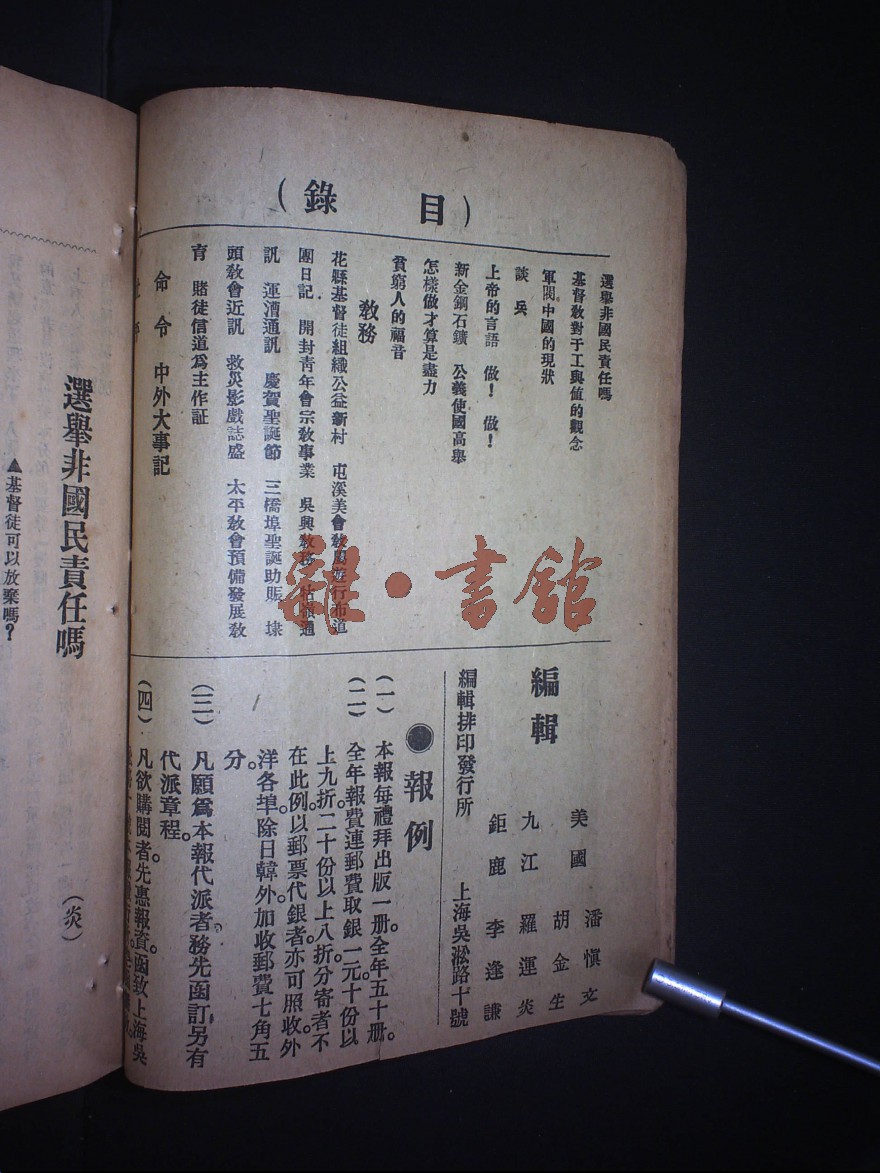 （目　錄）
選舉非國民責任嗎
基督教對于工與值的觀念
軍閥中國的現狀
談兵
上帝的言語　做！　做！
新金鋼石鑛　公義使國高舉
怎樣做才算是盡力
貧窮人的福音
教務
花縣基督徒組織公益新村　屯溪美會教
團日記　開封靑年會宗敎事業　吳興敎務
訊　運漕通訊　慶賀聖誕節　三橋埠聖誕助賑　埭
頭敎會近訊　救災影戲誌盛　太平敎會預備發展敎
育　賭徒信道爲主作証
命令　中外大事記
編輯
美國　潘愼文
胡金生
九江　羅運炎
鉅鹿　李逢謙
編輯排印發行所　上海吳淞路十號
●報例
（一）本報每禮拜出版一册。全年五十册。
（二）全年報費連郵費取銀一元。十份以
上九折。二十份以上八折。分寄者不
在此例。以郵票代銀者亦可照收。外
洋各埠除日韓外加收郵費七角五
分。
（三）凡願爲本報代派者務先函訂另有
代派章程。
（四）凡欲購閱者先惠報資。函致上海吳
選舉非國民責任嗎
▲基督徒可以放棄嗎？
（炎）
雜·書館